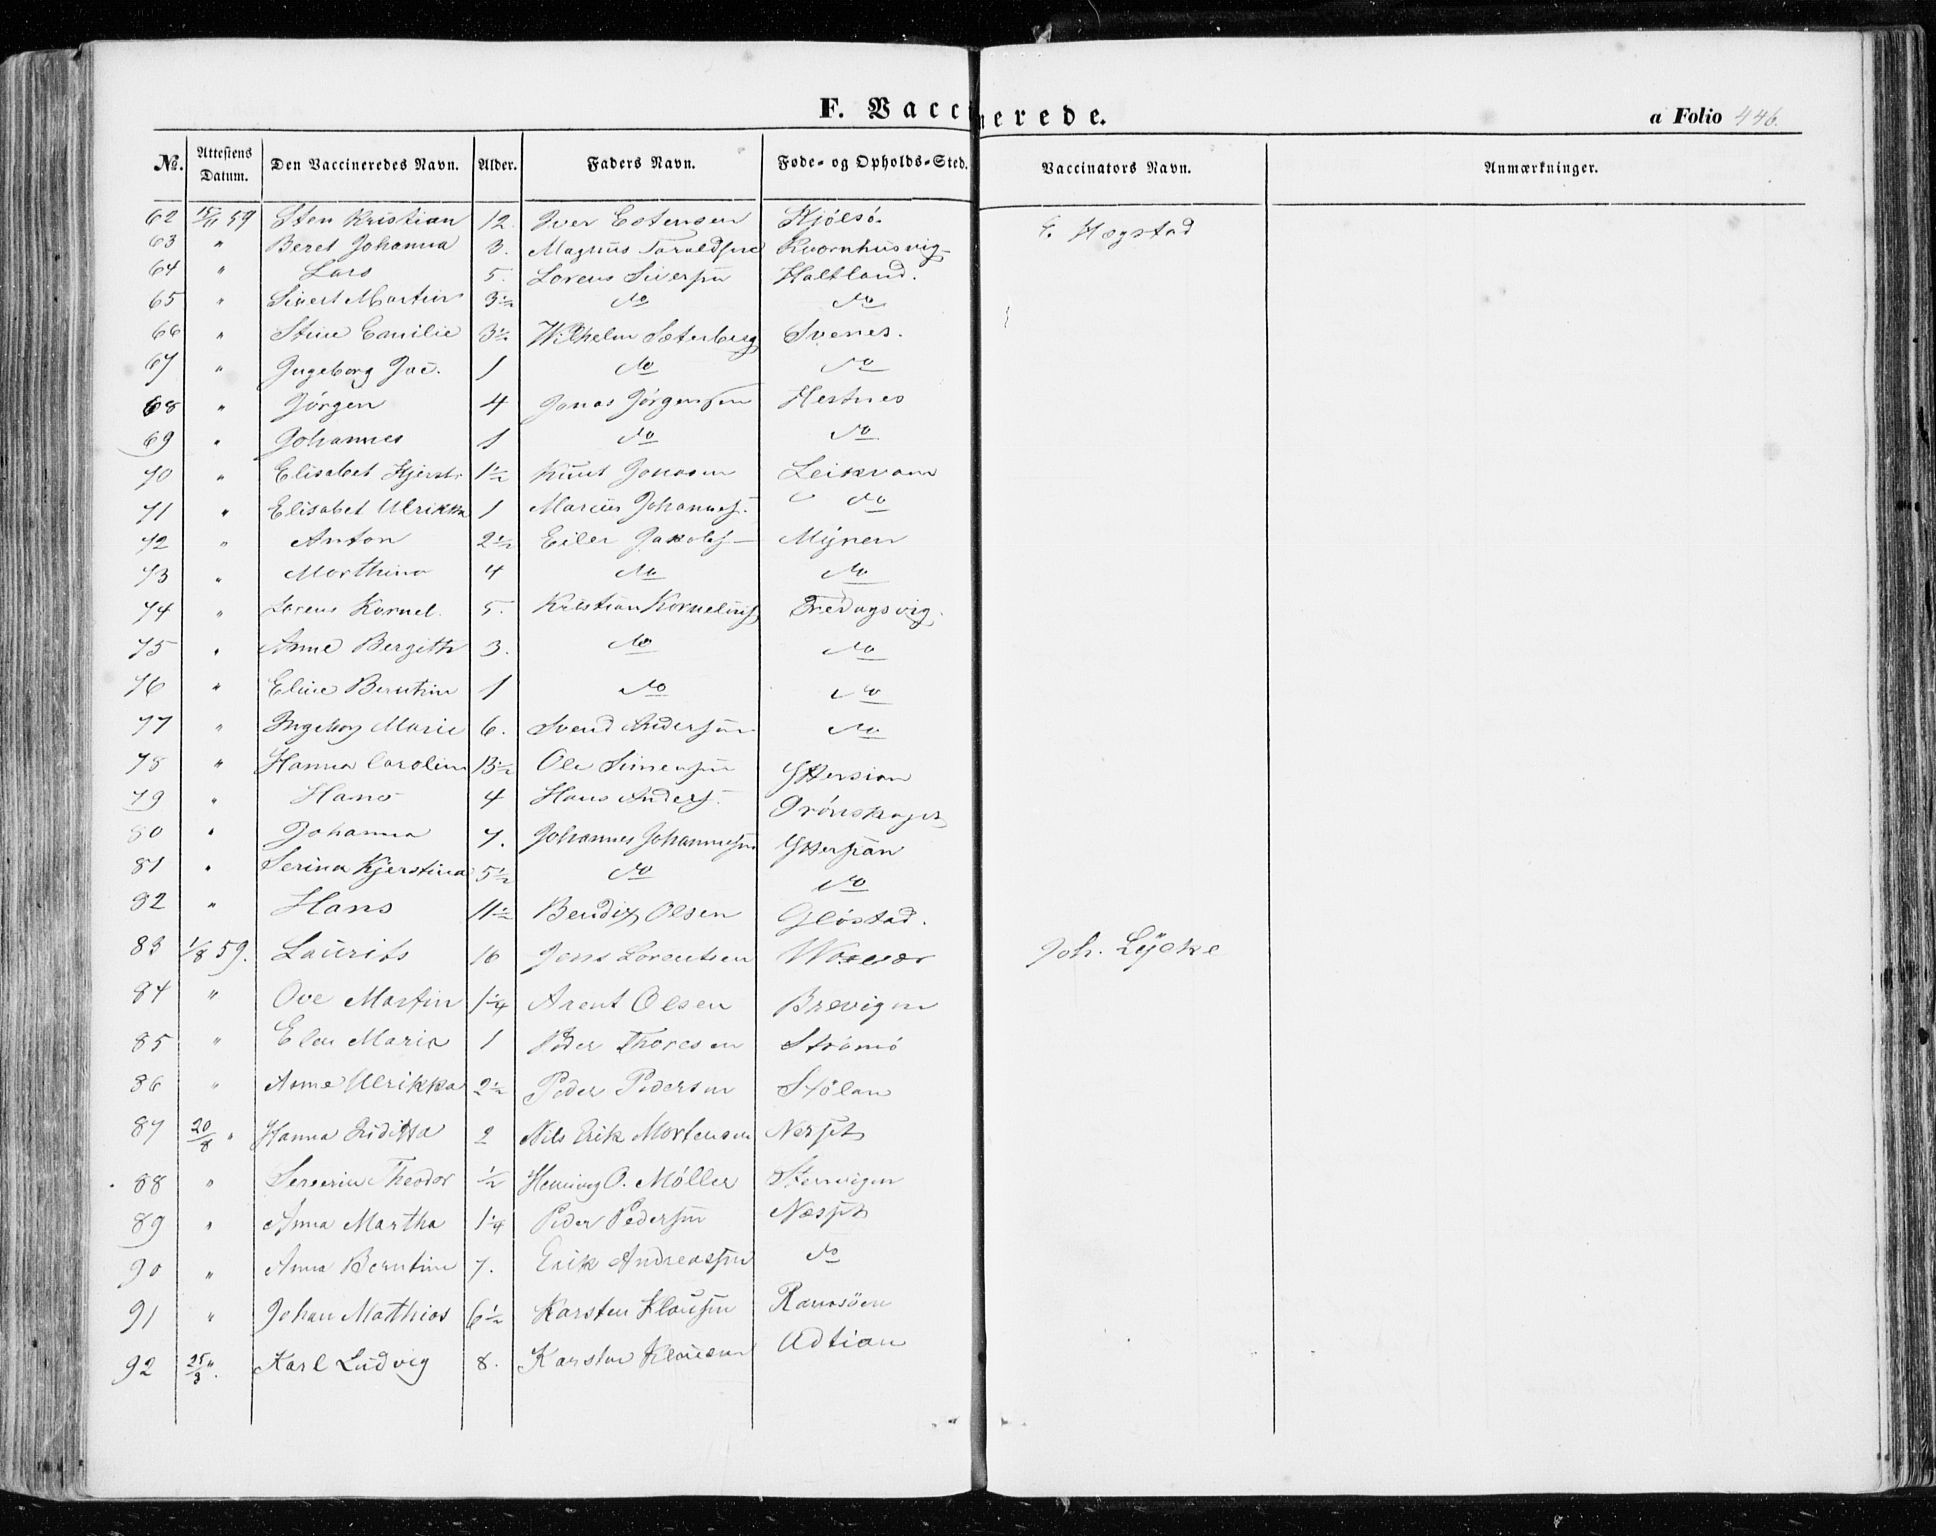 F. Vaccinerede.
a Folio 446.
No. Attestens Datum. Den Vaccineredes Navn. Alder. Faders Navn. Føde- og Opholds-Sted. Vaccinators Navn. Anmærkninger.
62 15/11 59 Sten Kristian 12. Iver Estensen Kjølsø. E. Hegstad
63 " Beret Johanna 3. Magnus Taraldsen Kvornhusvig
64 " Lars 5. Lorens Siversen Haltland.
65 " Sivert Martin 3½ do do
66 " Stine Emilie 3½ Wilhelm Sæterberg Svenes.
67 " Ingeborg Jac. 1 do do
68 " Jørgen 4 Jonas Jørgensen Hestnes
69 " Johannes 1 do do
70 " Elisabet Kjerst. 1½ Knut Jonasen Leikvam
71 " Elisabet Ulrikka 1 Marius Johannes. do
72 " Anton 2½ Eiler Jakobs Myren
73 " Marthina 4 do do
74 " Lorens Kornel. 5. Kristian Kornelius Fredagsvig.
75 " Anne Bergith 3. do do
76 " Eline Berntine 1 do do
77 " Ingeborg Marie 6. Svend Andersen do
78 " Hanna Caroline 13½ Ole Simensen Yttersian
79 " Hans 4 Hans Anders. Trønskaget
80 " Johanna 7. Johannes Johannesen Yttersian
81 " Serina Kjerstina 5½ do do
82 " Hans 11½ Bendix Olsen Gløstad.
83 1/8 59. Laurits 16 Jens Lorentsen Joh. Lycke
84 " Ove Martin 1¼ Arent Olsen Brevigen
85 " Elen Maria 1 Peder Thoresen Strømø
86 " Anne Ulrikka 2½ Peder Pedersen Stølan
87 20/8 " Hanna 2 Nils Erik Mortensen Neset
88 " Severin Theodor ½ Henning O. Møller Stenvigen
89 " Anna Martha 1¼ Peder Pedersen Næset
90 " Anna Berntine 7. Erik Andreassen do
91 " Johan Mathias 6½ Karsten Klausen Ramsøen
92 25/3 ". Karl Ludvig 8. Karsten Klausen Odtian